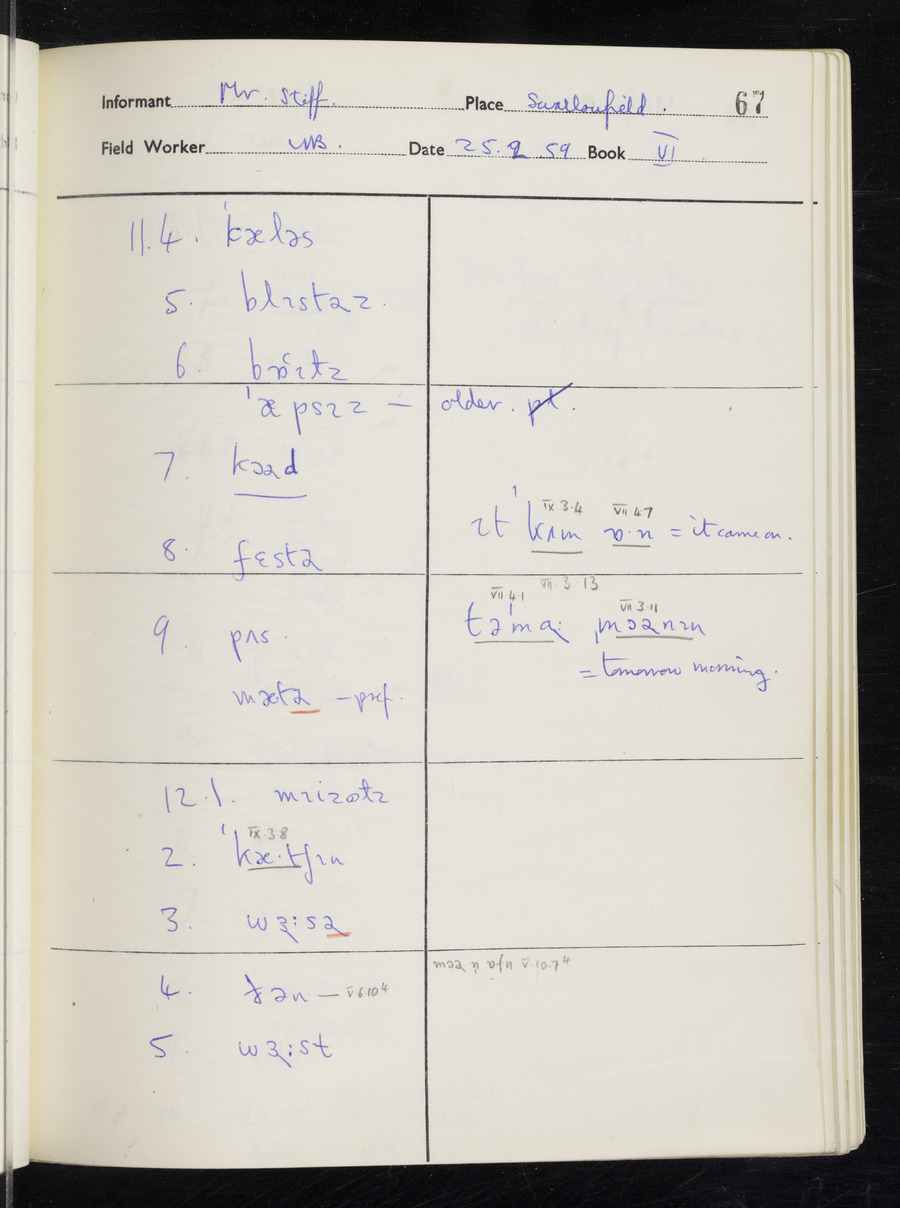 Informant Mr. Stiff. Place Swallowfield. 67
Field Worker WB. Date 25.9.59 Book VI
11.4. ˈkæləs
5. blɪstəɹz.
6. bɒɪɫz
ˈæpsɪz — older. pt.
7. kɔəd
ɪt ˈkʌm ɒ·n = it came on.
IX 3.4 VII 4.7
8. fɛstə
VII 4.1 VII.3.13 VII 3.11
9. pʌs.
təˈmɑ: ˌmɔənɪn
= tomorrow morning.
mætə — pref.
12.1. mɪizəɫz
IX.3.8
2. ˈkæ·tʃɪn
3. wɜ:sə
V.10.7 4
4. ðən — V 6.10 4
5. wɜ:st